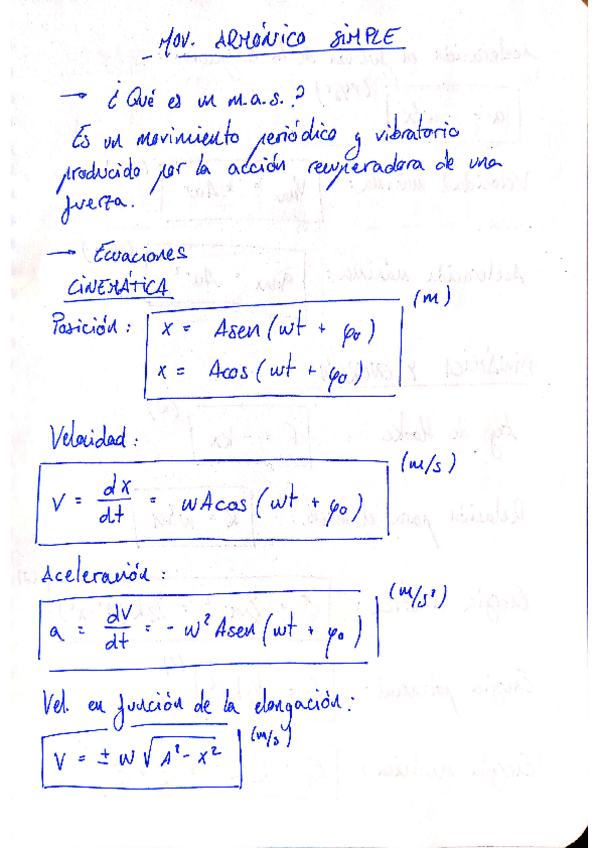 MOV. ARMÓNICO SIMPLE
→ ¿Qué es un m.a.s.?
Es un movimiento periódico y vibratorio
producido por la acción recuperadora de una
fuerza.
→ Ecuaciones
CINEMÁTICA
Posición: x = Asen(wt + φ₀) (m)
x = Acos(wt + φ₀)
Velocidad:
V = dx/dt = wAcos(wt + φ₀) (m/s)
Aceleración:
a = dV/dt = -w²Asen(wt + φ₀) (m/s²)
Vel. en función de la elongación:
V = ± w√(A² - x²) (m/s)